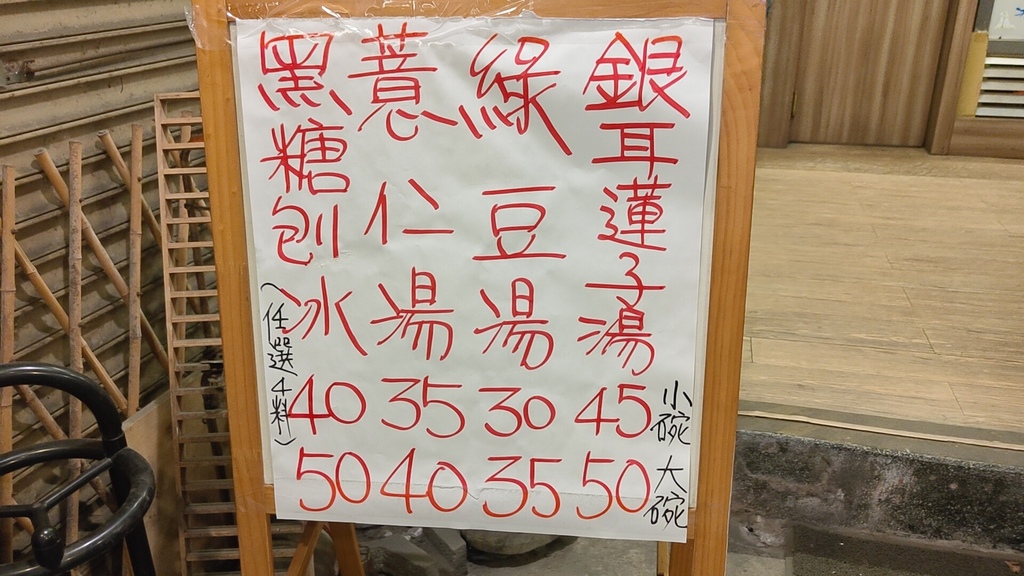 銀耳蓮子湯 45 50
綠豆湯 30 35
薏仁湯 35 40
黑糖刨冰 40 50
(任選4料)
小碗
大碗